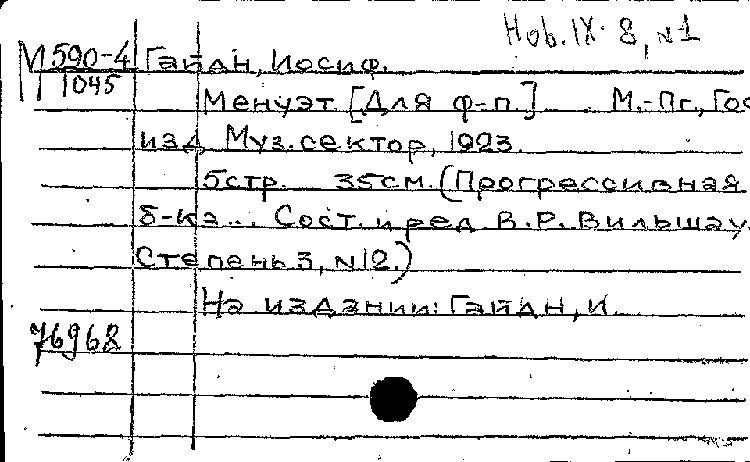 Hob. IX. 8, №1
М 590-4 Гайдн, Иосиф.
1045
Менуэт. [Для ф-п.] М.-Пг., Гос
изд Муз. сектор, 1923.
5стр. 35см. (Прогрессивная
б-ка... Сост. и ред В.Р. Вильшау.
Степень 3, №12.)
На издании: Гайдн, И.
76968